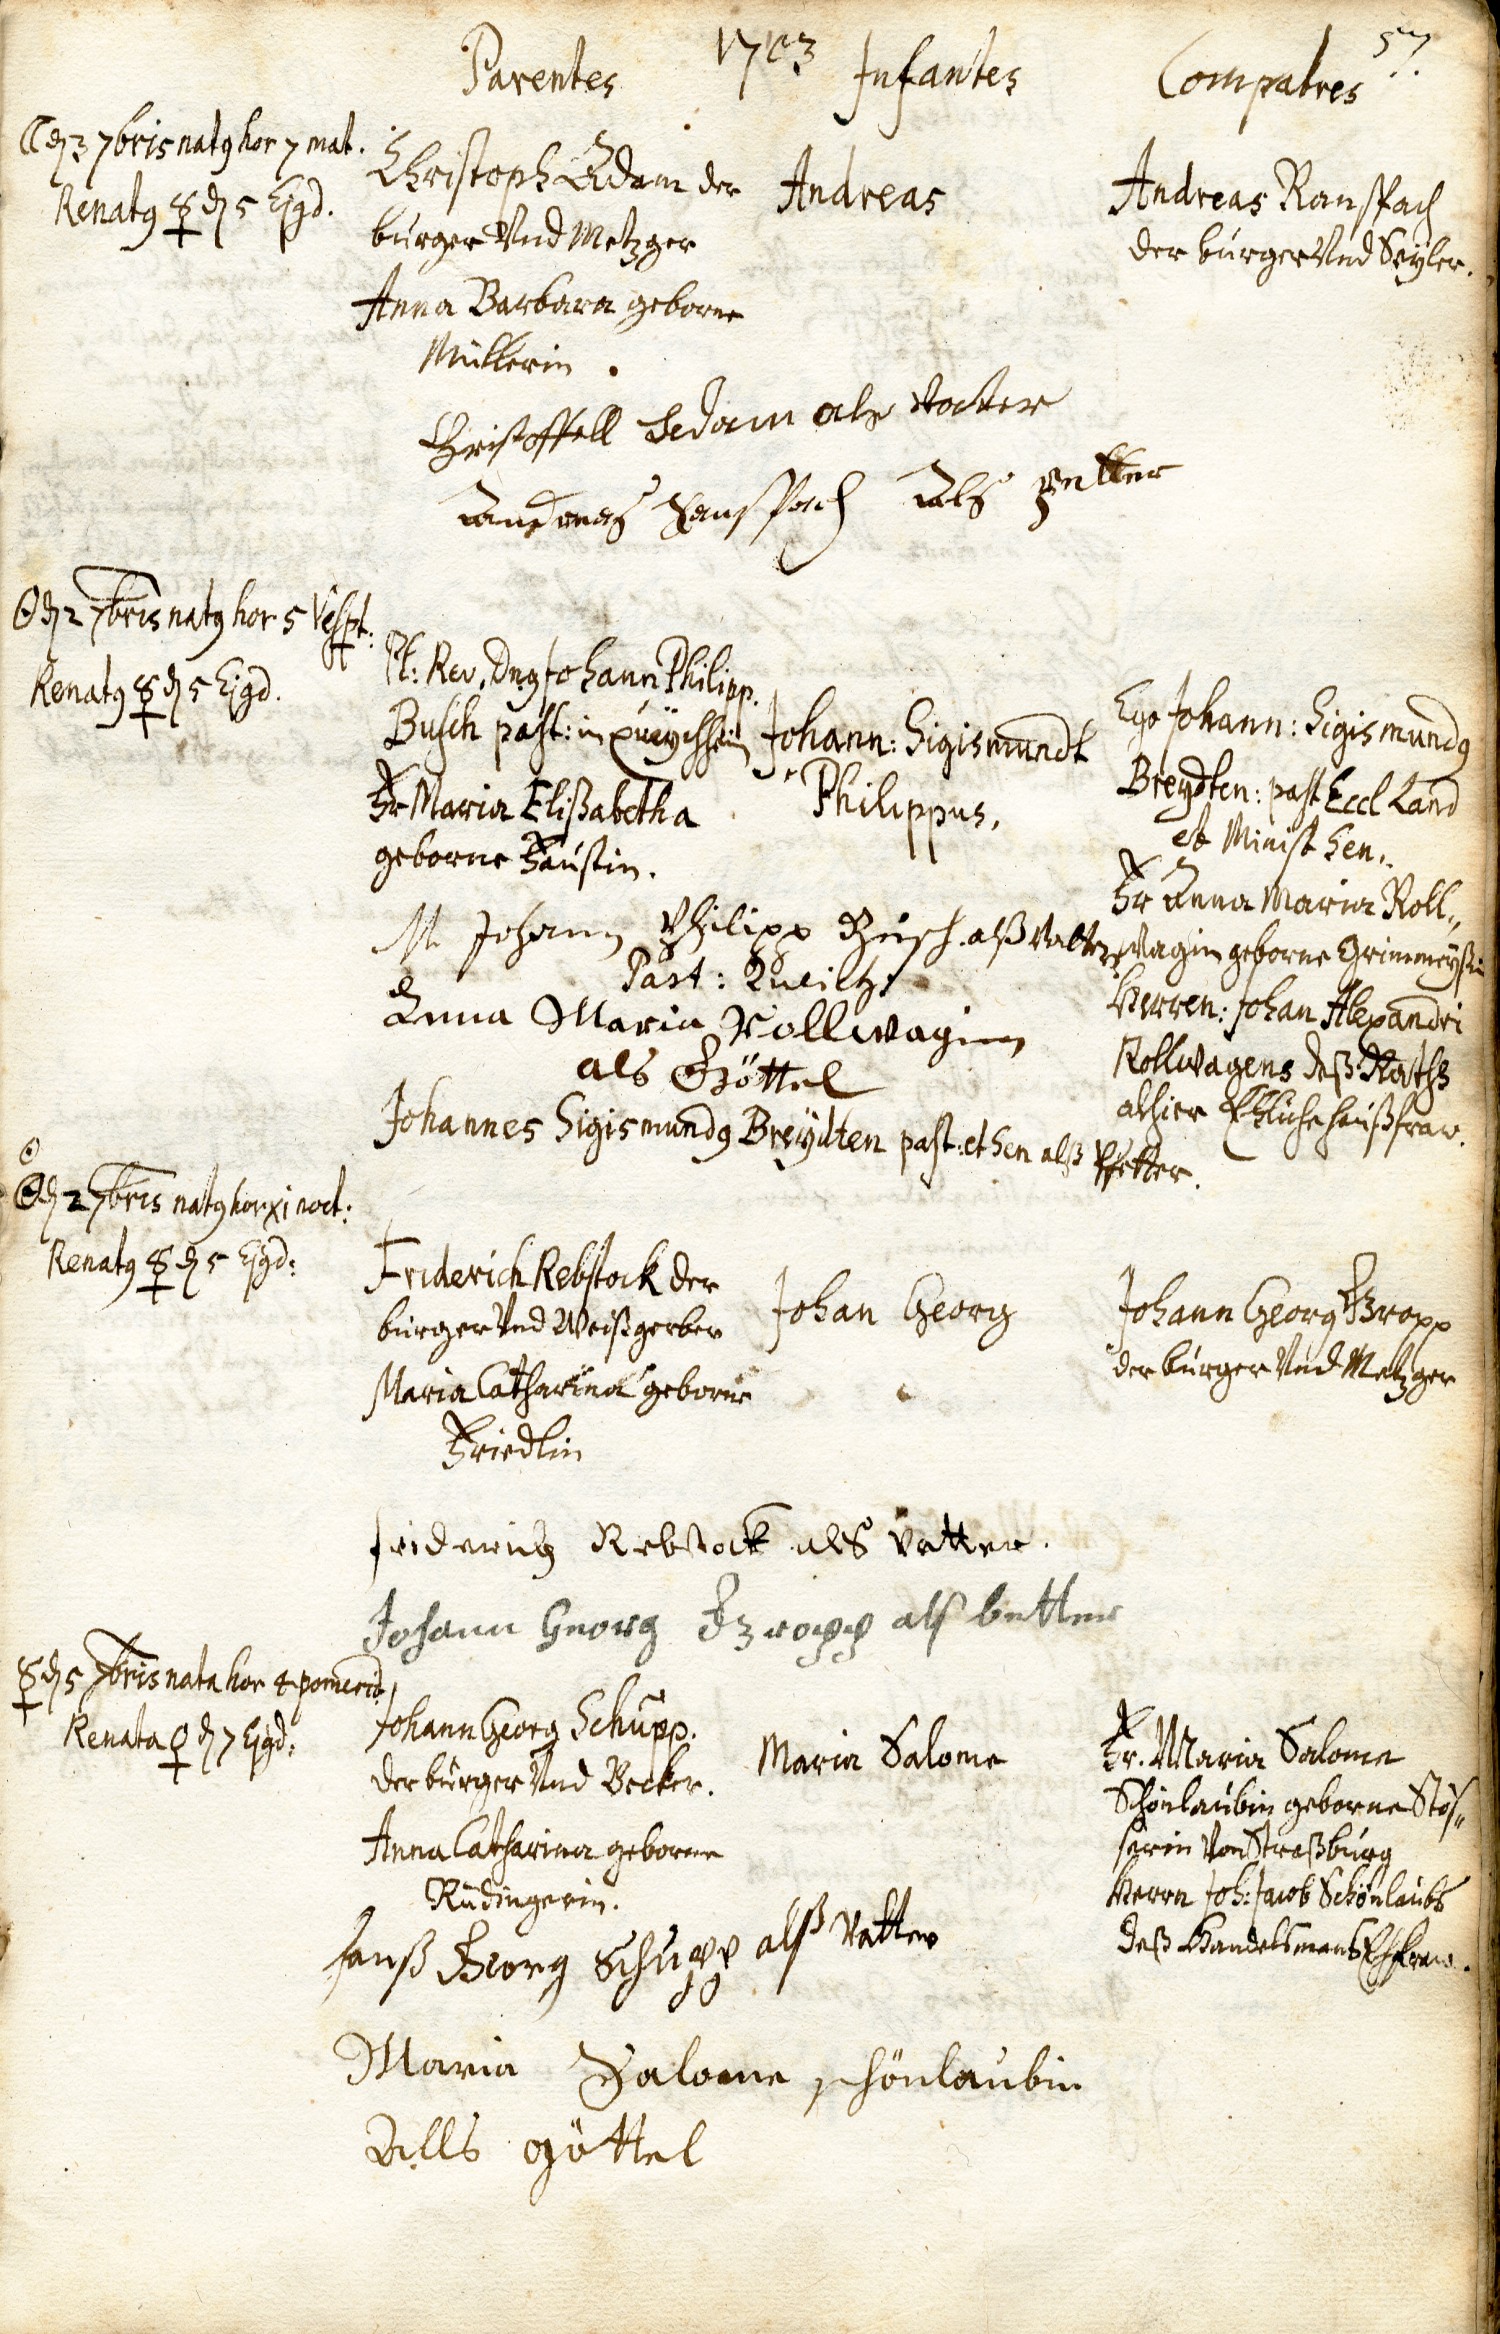 1703
57.
Parentes
Infantes
Compatres
☾ d 3 7bris nat9 hor 7 mat.
Renat9 ☿ d 5 Ejgd.
Christoph Adam der
burger Und Metzger
Anna Barbara geborne
Müllerin.
Andreas
Andreas Ranspach
der burger Und Seyler.
Christoffell Adam als vatter
Andreas Ranspach Als Petter
☉ d 2 7bris nat9 hor 5 Vespt:
Renat9 ☿ d 5 Ejgd.
Pl: Rev. Dn9 Johann Philipp.
Busch past: in
Fr Maria Elißabetha
geborne Faustin.
Johann: Sigismundt
Philippus,
Ego Johann: Sigismund9
Breydten: past Eccl Land
et Minist Sen.
Fr Anna Maria Roll„
wagin geborne
Herren: Johan Alexandri
Rollwagens deß Raths
alhier Ehliche haußfraw.
M Johann Philipp Busch alß Vatter
Past:
Anna Maria Rollwagin
als Göttel
Johannes Sigismund9 Breydten past: et Sen alß Pfetter.
☉ d 2 7bris nat9 hor xi noct:
Renat9 ☿ d 5 Ejgd:
Friderich Rebstock der
burger Und Weißgerber
Maria Catharina geborne
Friedlin
Johan Georg
Johann Georg Gropp
der burger Und Metzger
friderich Rebstock als vatter.
Johann Georg Gropp als better
☿ d 5 7bris nata hor 4 pomerid,
Renata ♀ d 7 Ejgd:
Johann Georg Schupp.
der burger Und Becker.
Anna Catharina geborne
Rüdingerin.
Maria Salome
Fr. Maria Salome
Schönlaubin geborne Stös„
serin Von Straßburg
Herrn Joh: Jacob Schönlaubs
deß Handelsmans Ehfraw.
hanß Georg Schupp alß Vatter
Maria Salome schönlaubin
Alls göttel